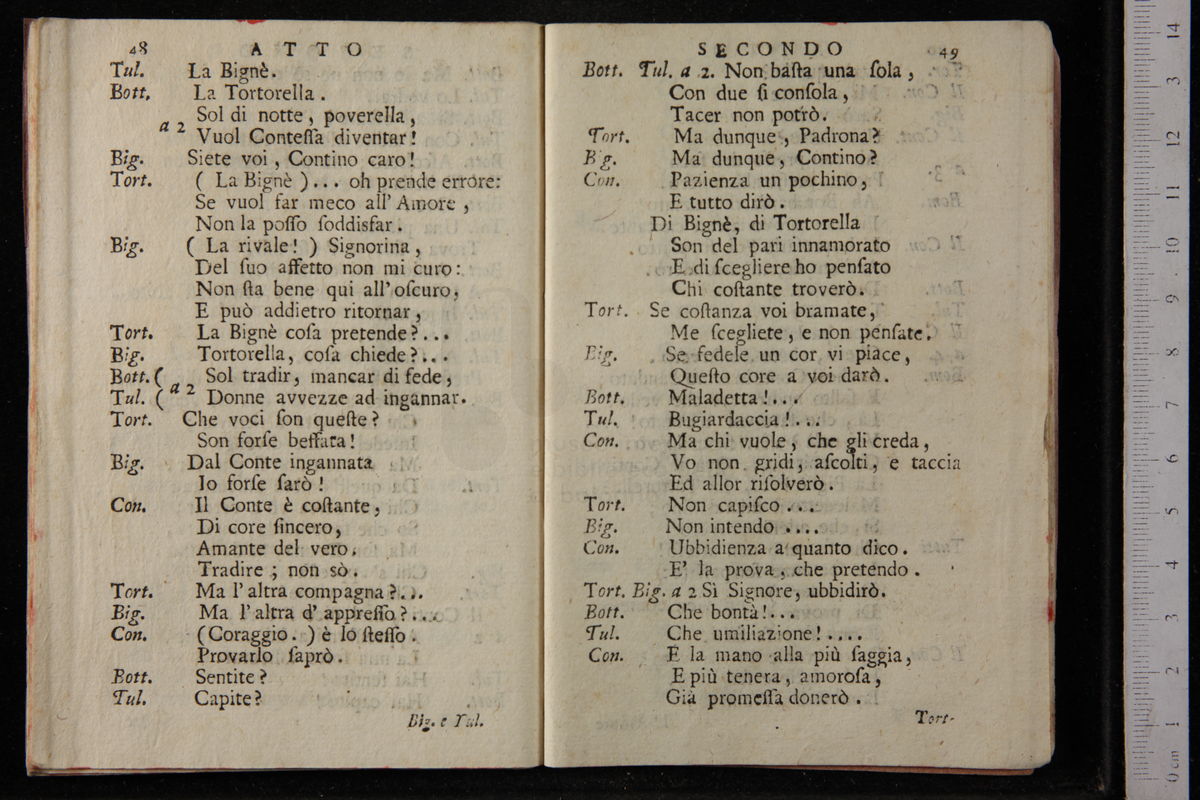 48 ATTO
Tul. La Bignè.
Bott. La Tortorella.
Sol di notte, poverella,
a 2 Vuol Conteſſa diventar!
Big. Siete voi, Contino caro!
Tort. ( La Bignè )... oh prende errore:
Se vuol far meco all' Amore,
Non la poſſo ſoddisfar.
Big. ( La rivale! ) Signorina,
Del ſuo affetto non mi curo:
Non ſta bene qui all' oſcuro,
E può addietro ritornar,
Tort. La Bignè coſa pretende?...
Big. Tortorella, coſa chiede?...
Bott. ( Sol tradir, mancar di fede,
Tul. ( a 2 Donne avvezze ad ingannar.
Tort. Che voci ſon queſte?
Son forſe beffata!
Big. Dal Conte ingannata
Io forſe ſarò!
Con. Il Conte è coſtante,
Di core ſincero,
Amante del vero.
Tradire; non sò.
Tort. Ma l' altra compagna?...
Big. Ma l' altra d' appreſſo?...
Con. (Coraggio.) è lo ſteſſo.
Provarlo ſaprò.
Bott. Sentite?
Tul. Capite?
Big. e Tul.
SECONDO 49
Bott. Tul. a 2. Non baſta una ſola,
Con due ſi conſola,
Tacer non potrò.
Tort. Ma dunque, Padrona?
Big. Ma dunque, Contino?
Con. Pazienza un pochino,
E tutto dirò.
Di Bignè, di Tortorella
Son del pari innamorato
E di ſcegliere ho penſato
Chi coſtante troverò.
Tort. Se coſtanza voi bramate,
Me ſcegliete, e non penſate.
Big. Se fedele un cor vi piace,
Queſto core a voi darò.
Bott. Maladetta!...
Tul. Bugiardaccia!...
Con. Ma chi vuole, che gli creda,
Vo non gridi, aſcolti, e taccia
Ed allor riſolverò.
Tort. Non capiſco...
Big. Non intendo....
Con. Ubbidienza a quanto dico.
E' la prova, che pretendo.
Tort. Big. a 2 Sì Signore, ubbidirò.
Bott. Che bontà!...
Tul. Che umiliazione!....
Con. E la mano alla più ſaggia,
E più tenera, amoroſa,
Già promeſſa donerò.
Tort-
0 cm 1 2 3 4 5 6 7 8 9 10 11 12 3 14